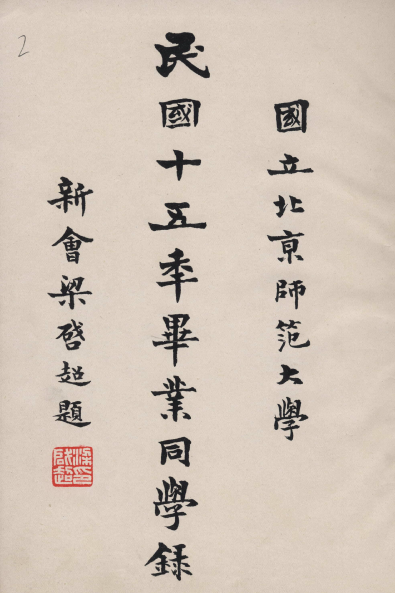 國立北京師范大學
民國十五季畢業同學録
新會梁啓超題
2